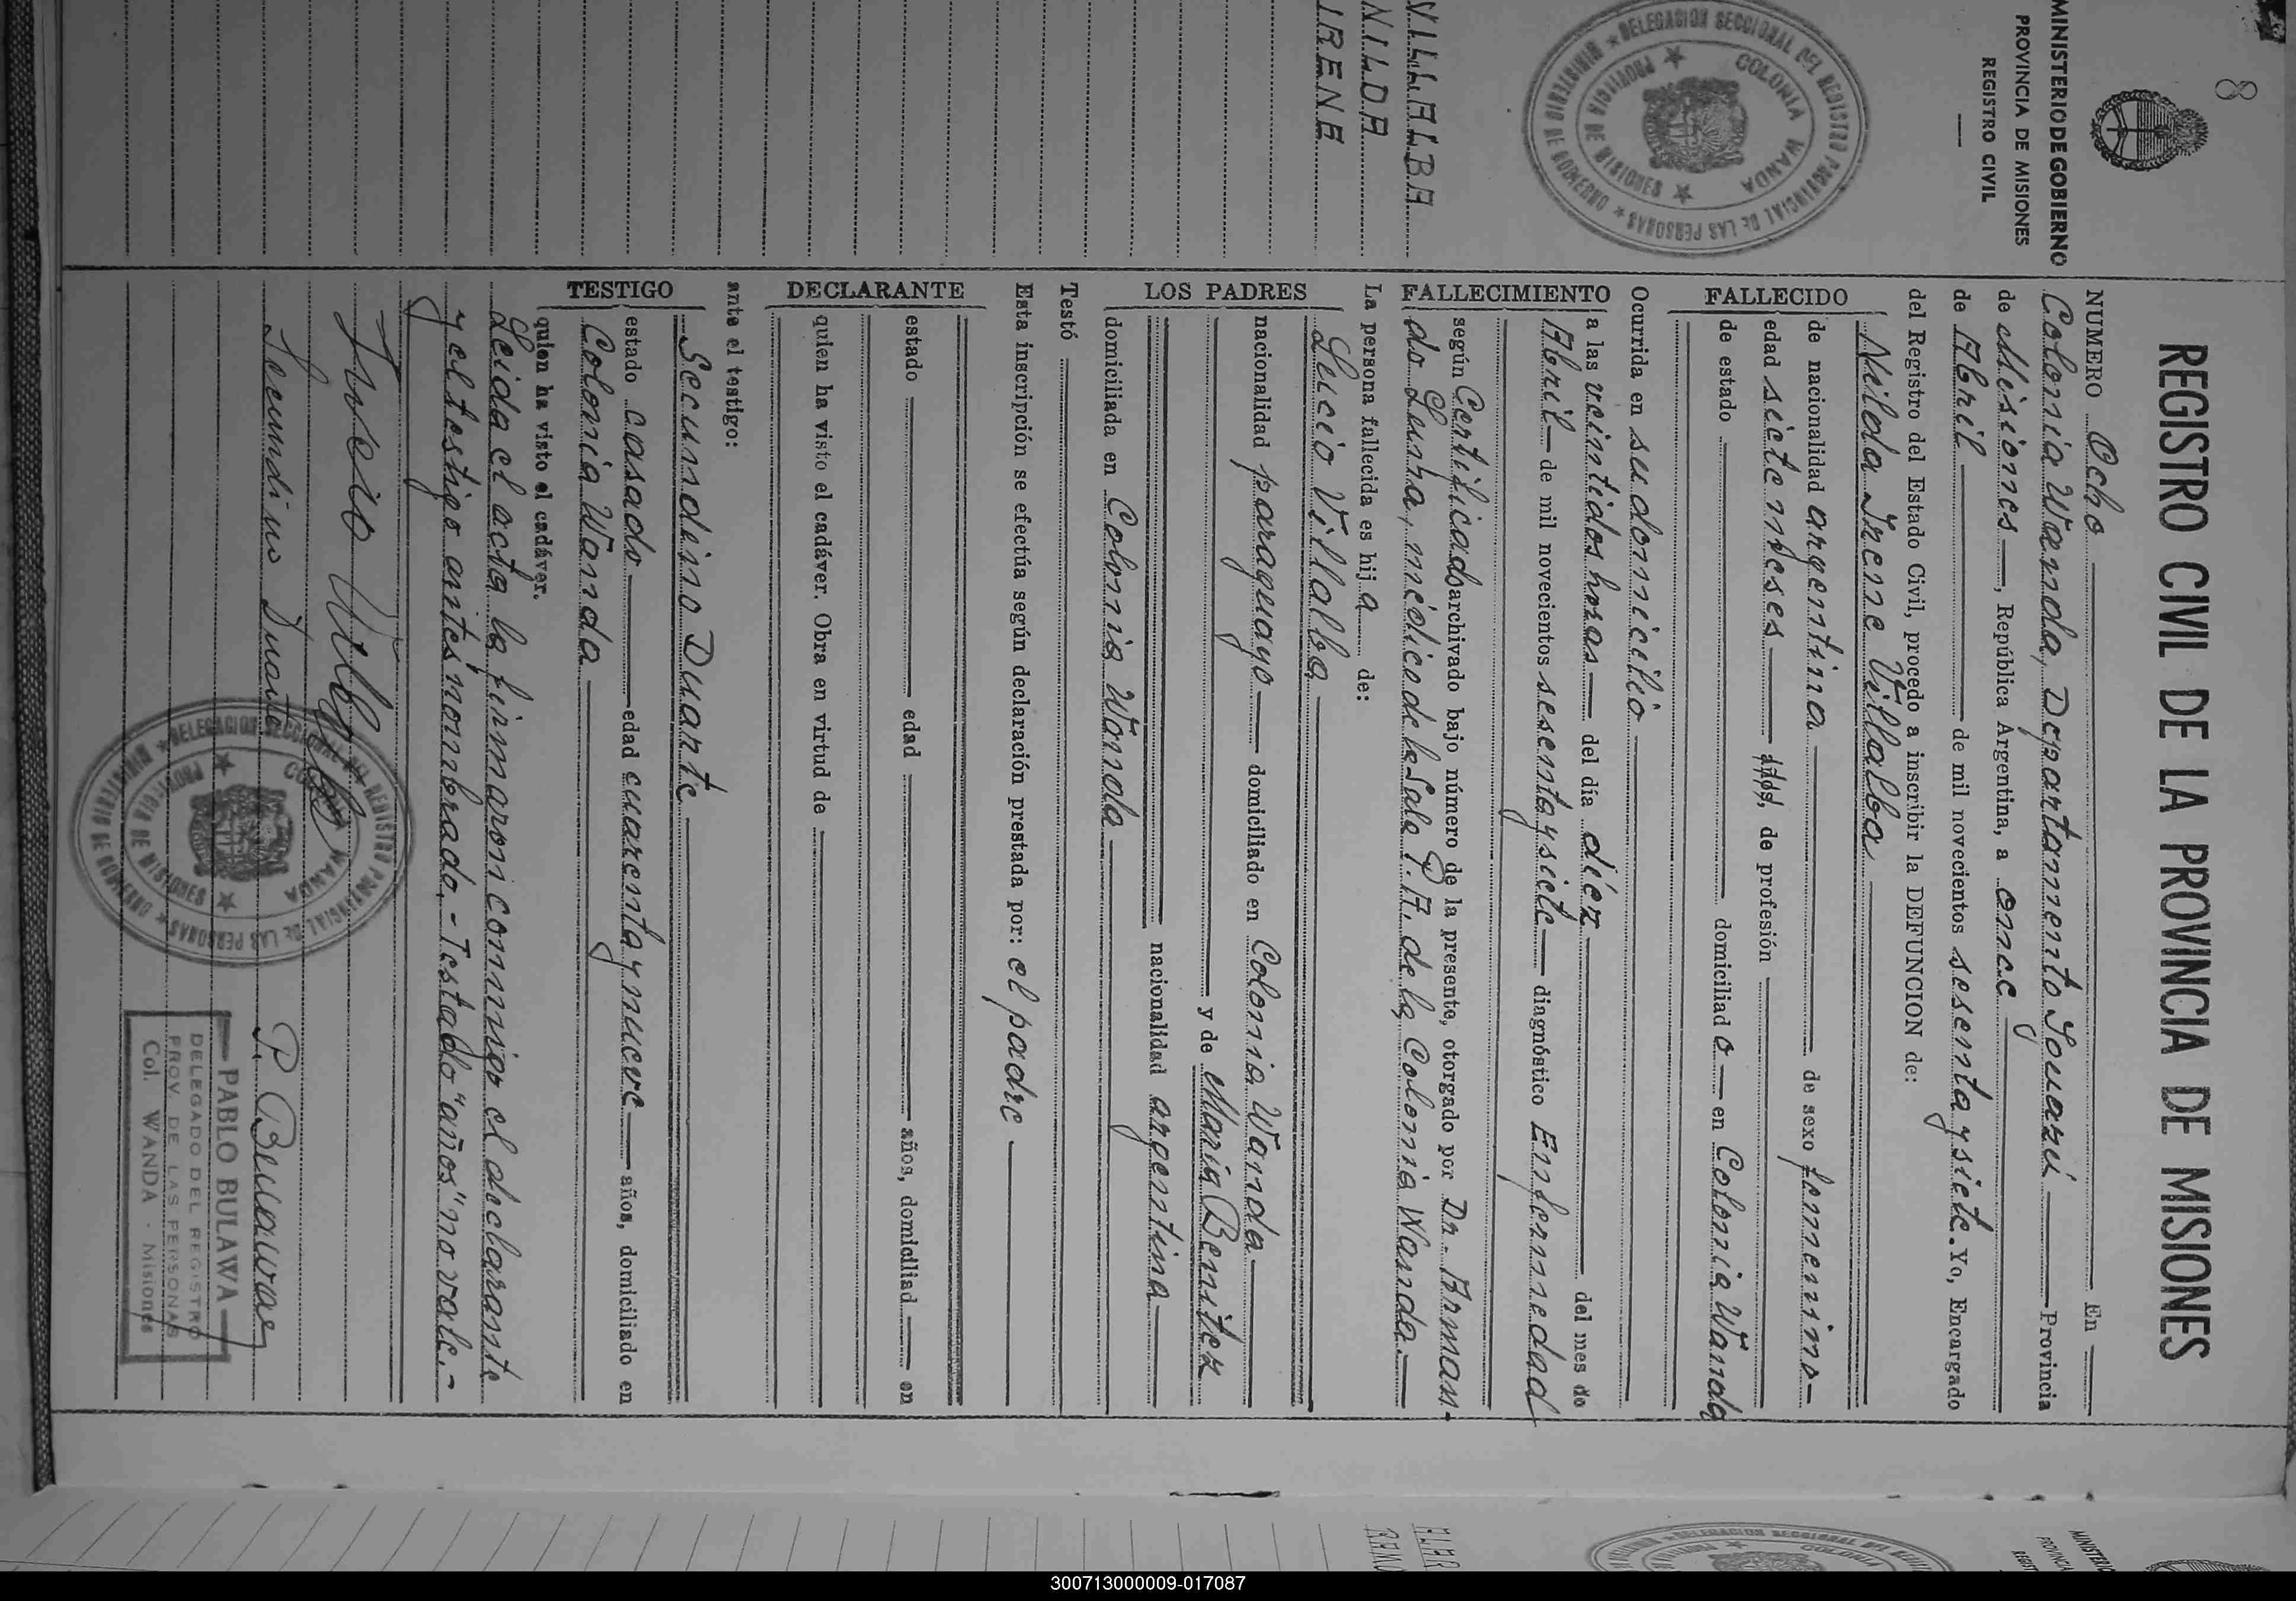 8
MINISTERIO DE GOBIERNO
PROVINCIA DE MISIONES
REGISTRO CIVIL
DELEGACION SECCIONAL DEL REGISTRO PROVINCIAL DE LAS PERSONAS
MINISTERIO DE GOBIERNO
COLONIA WANDA
PROVINCIA DE MISIONES
VILLALBA
NILDA
IRENE
REGISTRO CIVIL DE LA PROVINCIA DE MISIONES
NUMERO Ocho En
Colonia Wanda, Departamento Iguazú Provincia
de Misiones, República Argentina, a once
de Abril de mil novecientos sesenta y siete. Yo, Encargado
del Registro del Estado Civil, procedo a inscribir la DEFUNCION de:
FALLECIDO
Nilda Irene Villalba
de nacionalidad argentina de sexo femenino-
edad siete meses años, de profesión
de estado domiciliad o en Colonia Wanda
Ocurrida en su domicilio
FALLECIMIENTO
a las veintidos horas del día diez del mes de
Abril de mil novecientos sesenta y siete diagnóstico Enfermedad
según Certificado archivado bajo número de la presente, otorgado por Dr. Arman-
do Luna, médico de la Sala P. A. de la Colonia Wanda.
La persona fallecida es hij a de:
LOS PADRES
Lucio Villalba
nacionalidad paraguayo domiciliado en Colonia Wanda
y de María Benitez
nacionalidad argentina
domiciliada en Colonia Wanda
Testó
Esta inscripción se efectúa según declaración prestada por: el padre
DECLARANTE
estado edad años, domiciliad en
quien ha visto el cadáver. Obra en virtud de
ante el testigo:
TESTIGO
Secundino Duarte
estado casado edad cuarenta y nueve años, domiciliado en
Colonia Wanda
quien ha visto el cadáver.
Leida el acta la firmaron conmigo el declarante
y el testigo antes nombrado.- Testado "años" no vale.-
Secundino Duarte
DELEGACION SECCIONAL DEL REGISTRO PROVINCIAL DE LAS PERSONAS
MINISTERIO DE GOBIERNO
COLONIA WANDA
PROVINCIA DE MISIONES
PABLO BULAWA
DELEGADO DEL REGISTRO
PROV. DE LAS PERSONAS
Col. WANDA - Misiones
300713000009-017087